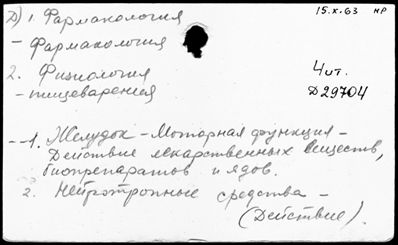 Д) 1. Фармакология
15.X.63 НР
- Фармакология
2. Физиология
4 ит.
- пищеварения
Д29704
- 1. Желудок - Моторная функция -
Действие лекарственных веществ,
биопрепаратов и ядов.
2. Нейротропные средства -
(Действие).